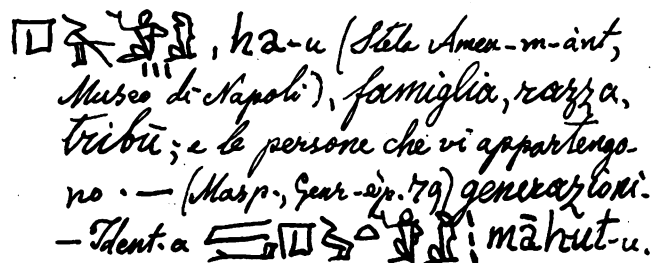 , ha-u (Stela Amen-m-ȧnt,
Museo di Napoli), famiglia, razza,
tribù; e le persone che vi appartengo-
no. — (Masp., Genr-ép. 79) generazioni.
— Ident. a māhut-u.